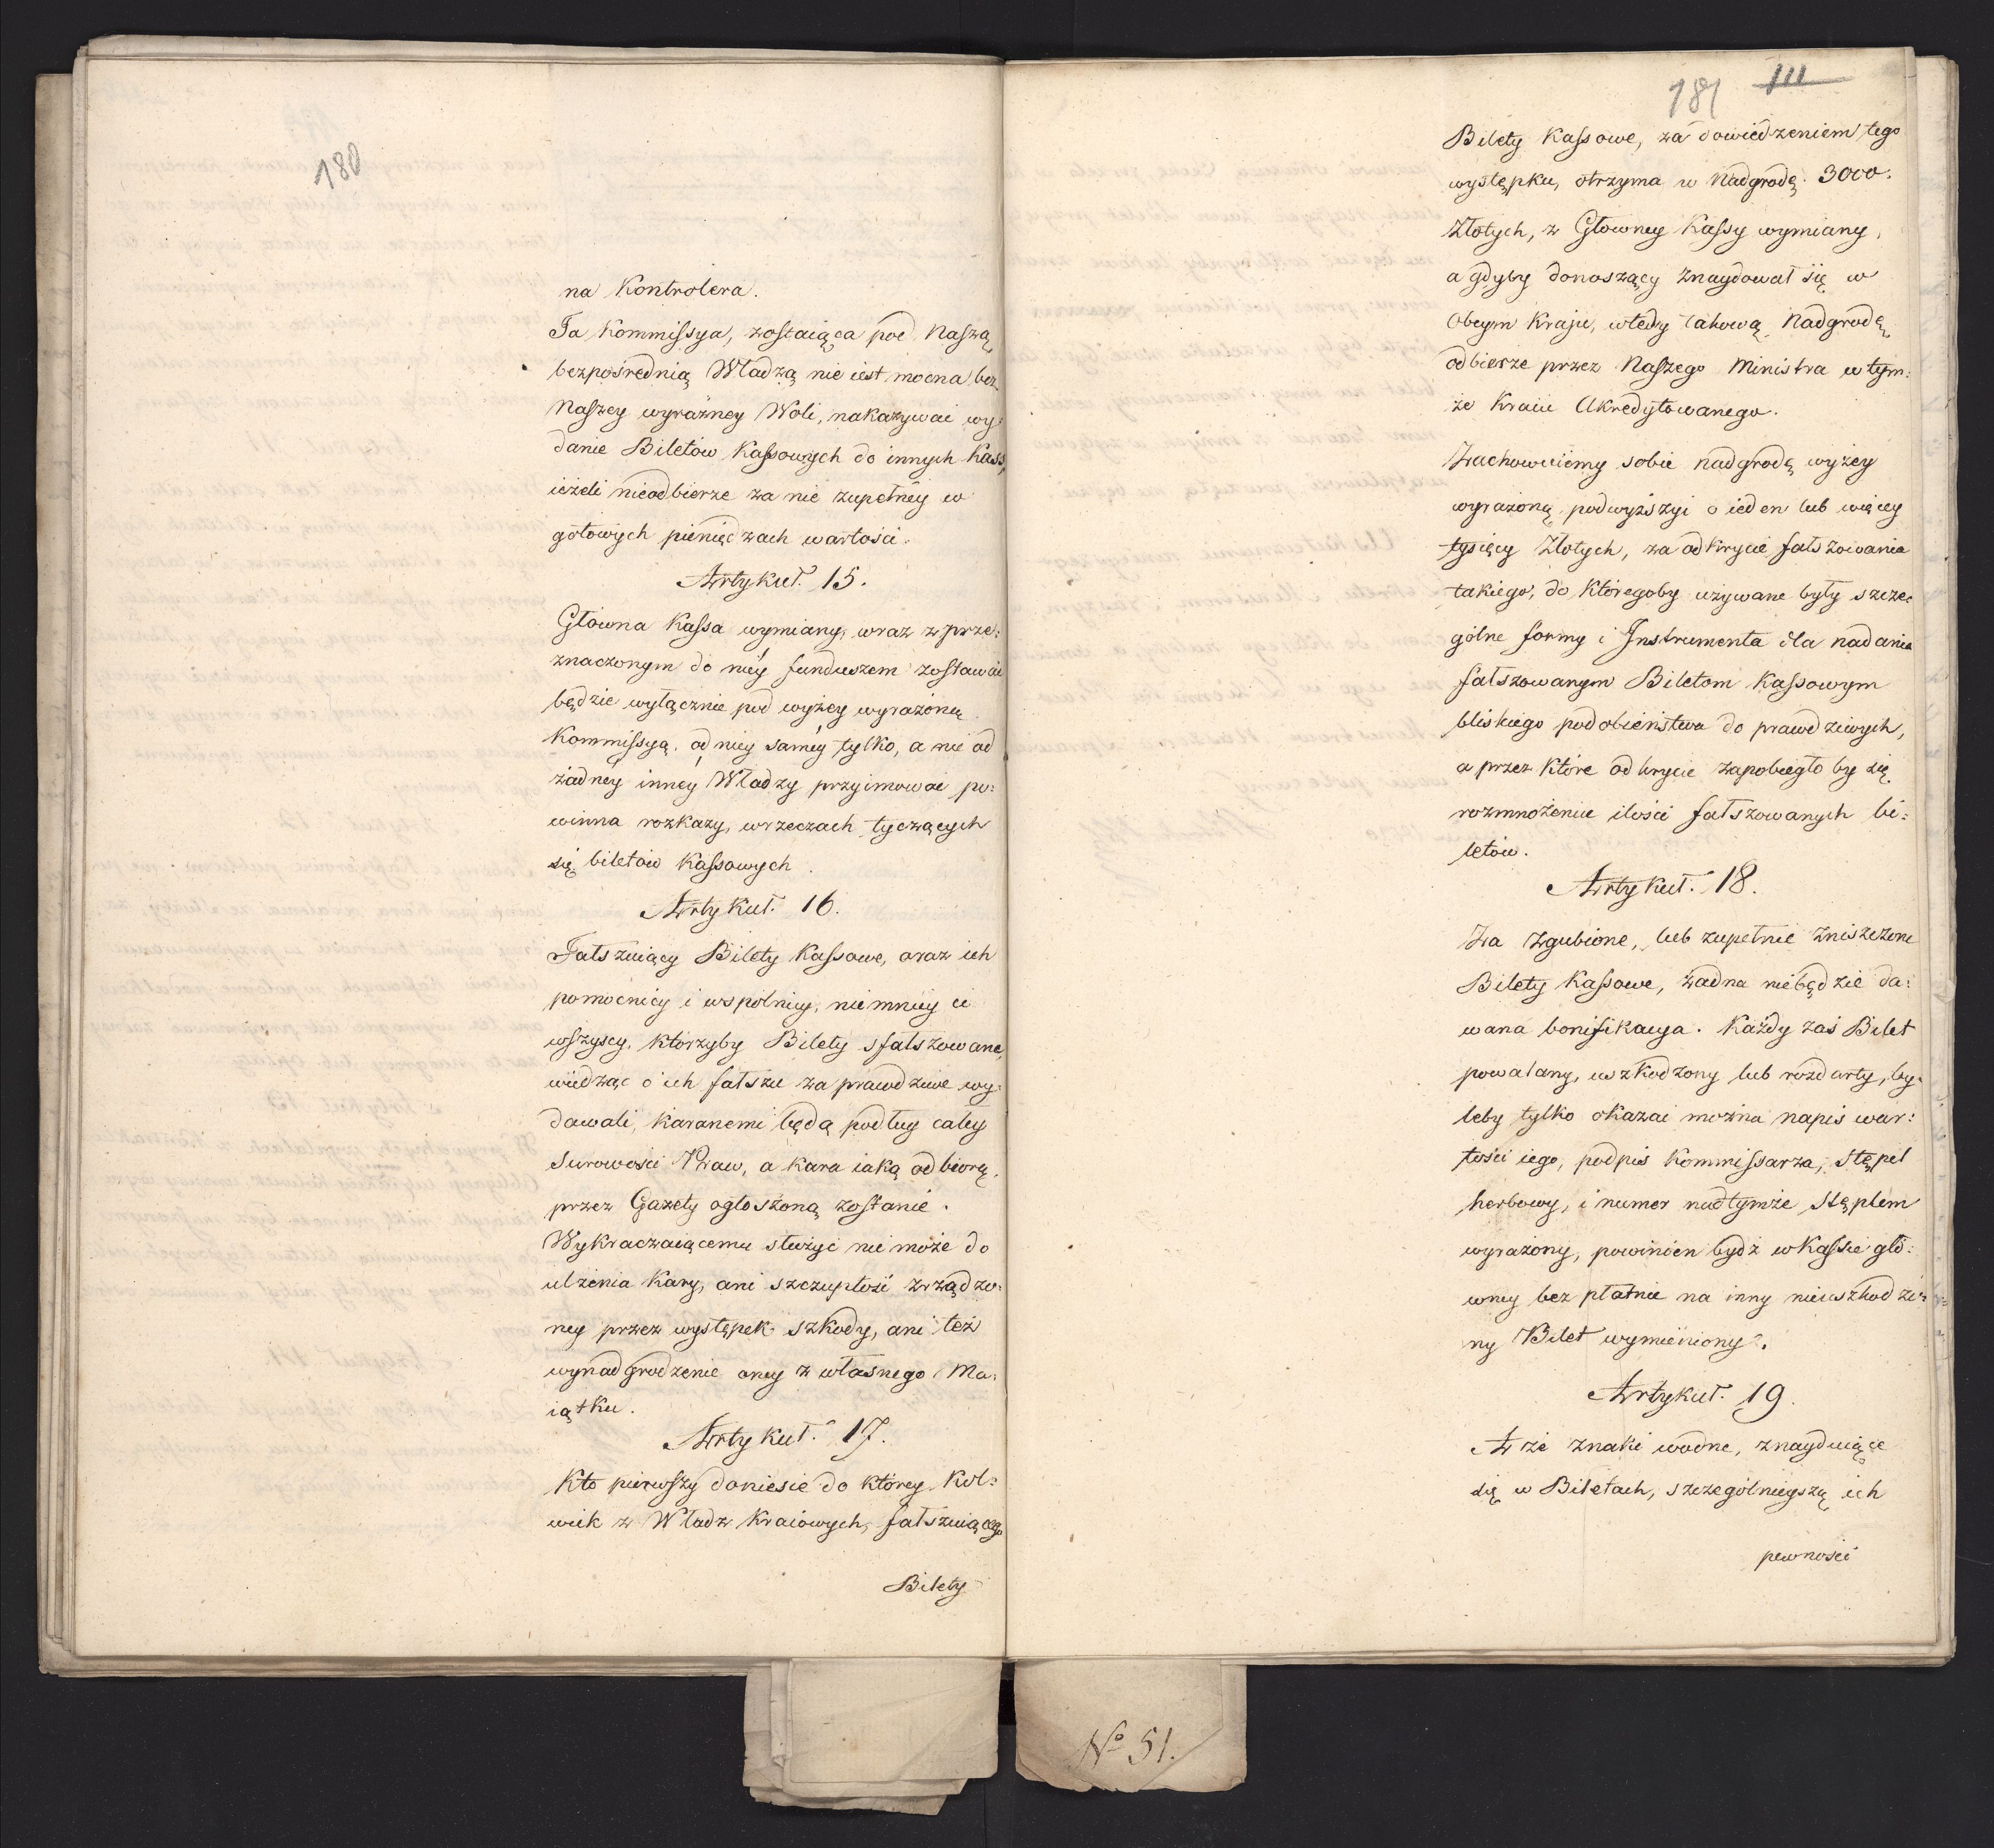 180
na Kontrolera.
Ta Kommissya, zostaiąca pod Naszą
bezpośrednią Władzą nie iest mocna bez
Naszey wyraźney Woli, nakazywać wy:
danie Biletów Kassowych do innych Kass,
ieżeli nieodbierze za nie zupełnéy w
gotowych pieniędzach wartości.
Artykuł. 15.
Główna Kassa wymiany, wraz z prze:
znaczonym do niéy funduszem zostawać
będzie wyłącznie pod wyżey wyrażoną
Kommissyą. od niey saméy tylko, a nie od
żadnéy innéy Władzy przyimować po:
winna rozkazy, w rzeczach tyczących
się biletów Kassowych.
Artykuł. 16.
Fałszuiący Bilety Kassowe, oraz ich
pomocnicy i wspólnicy, niemniéy ci
wszyscy, którzyby Bilety sfałszowane,
wiedząc o ich fałszu za prawdziwe wy:
dawali, karanemi będą podług całey
Surowości Praw, a kara iaką odbiorą,
przez Gazety ogłoszoną zostanie.
Wykraczaiącemu służyć nie może do
ulżenia Kary, ani szczupłość zrządzo:
ney przez występek szkody, ani też
wynadgrodzenie oney z własnego Ma:
iątku.
Artykuł. 17.
Kto pierwszy doniesie do którey kol:
wiek z Władz Kraiowych, fałszuiącego
Bilety
181 111
Bilety Kassowe, za dowiedzeniem tego
występku, otrzyma w Nadgrodę 3000.
Złotych, z Głowney Kassy wymiany,
a gdyby donoszący znaydował się w
Obcym Kraju, wtedy takową Nadgrodę
odbierze przez Naszego Ministra w tym:
że Kraiu Akredytowanego.
Zachowuiemy sobie nadgrodę wyżey
wyrażoną, podwyższyć o ieden lub więcey
tysięcy Złotych, za odkrycie fałszowania
takiego, do któregoby używane były szcze:
gólne formy i Instrumenta dla nadania
fałszowanym Biletom Kassowym
bliskiego podobieństwa do prawdziwych,
a przez które odkrycie zapobiegło by się
rozmnożeniu ilości fałszowanych bi:
letów.
Artykuł. 18.
Za zgubione, lub zupełnie zniszczone
Bilety Kassowe, żadna niebędzie da:
wana bonifikacya. Każdy zaś Bilet
powalany, uszkodzony lub rozdarty, by:
leby tylko okazać można napis war:
tości iego, podpis Kommissarza, Stępel
herbowy, i numer nad tymże Stęplem
wyrażony, powinien bydź w Kassie głó:
wney bezpłatnie na inny nieuszkodzo:
ny Bilet wymieniony.
Artykuł. 19.
A że znaki wodne, znayduiące
się w Biletach, szczególnieyszą ich
pewności
No 51.